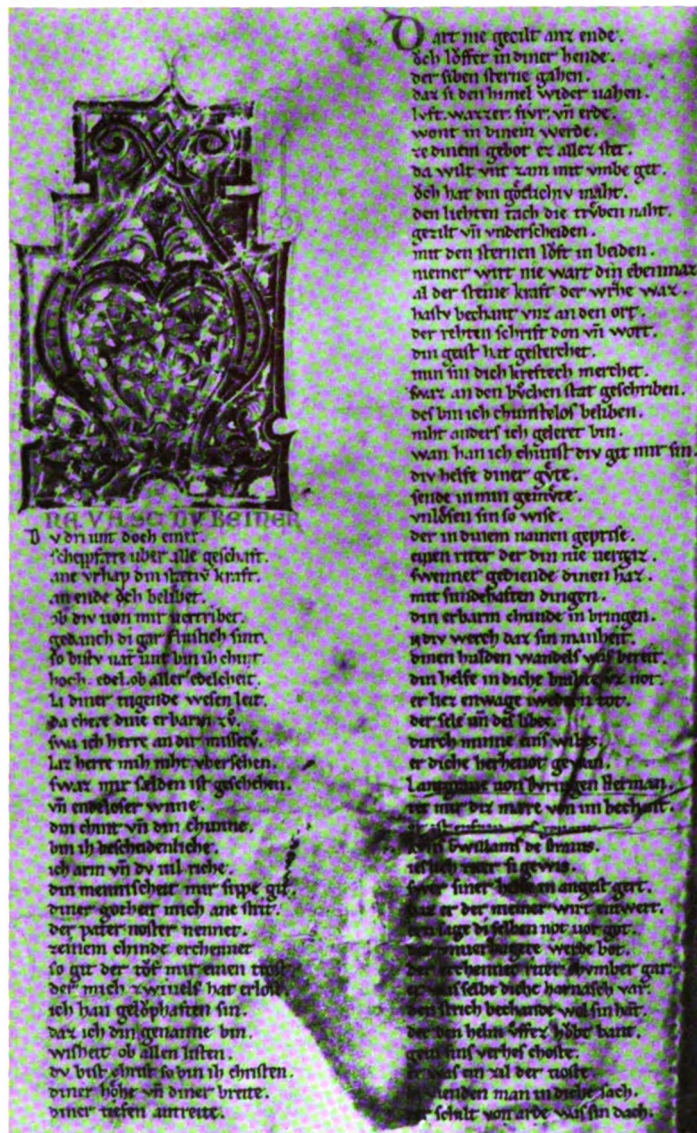 NE VALSC DV REINER
Dv dri unt doch einer.
schepfære uber alle geschaft.
ane vrhap din stætiv kraft.
an ende och belibet.
ob div uon mir vertribet.
gedanch di gar flustich sint.
so bistv uat unt bin ih chint
hoch. edel. ob aller edelcheit.
La diner tugende wesen leit.
da chere dine erbarm zv.
swa ich herre an dir missetv.
Laz herre mih niht vbersehen.
swaz mir sælden ist geschehen.
vñ endeloser wnne.
din chint vñ din chunne.
bin ih bescheidenliche.
ich arm vñ dv uil riche.
din mennischeit mir sippe git
diner gotheit mich ane strit.
der pater noster nennet.
zeinem chinde erchennet.
so git der tof mir einen trost
der mich zwiuels hat erlost
ich han gelophaften sin.
daz ich din genanne bin.
wisheit ob allen listen.
dv bist christ so bin ih christen.
diner höhe vñ diner breite.
diner tiefen antreite.
Wart nie gecilt anz ende.
och löffet in diner hende.
der siben sterne gahen.
daz si den himel wider uahen.
luft. wazzer. fivr. vñ erde.
wont in dinem werde.
ze dinem gebot ez allez stet.
da wilt unt zam mit vmbe get.
och hat din götlichiv maht.
den liehten tach die trvben naht.
gezilt vñ vnderscheiden.
mit den sternen löft in beiden.
niemer wirt nie wart din ebenmaz
al der steine kraft der wrhe waz.
hastv bechant vnz an den ort.
der rehten schrift don vñ wort.
din geist hat gesterchet.
min sin dich kreftech merchet.
swaz an den bvchen stat geschriben.
des bin ich chunstelos beliben.
niht anders ich geleret bin.
wan han ich chunst div git mir sin.
div helfe diner gvte.
sende in min gemvte.
vnlosen sin so wise.
der in dinem namen geprise.
einen riter der din nie uergaz.
swenner gediende dinen haz.
mit sundehaften dingen.
din erbarm chunde in bringen.
an div werch daz sin manheit.
dinen hulden wandels was bereit.
din helfe in diche brahte vz not.
er liez en wage iwedern tot.
der sele vñ des libes.
durch minne eins wibes.
er diche herzenot gewan.
Lantgraue von dvringen Herman.
tet mir diz mære von im bechant.
er ist en
kvns Gwillams de Orans.
swer siner helfe in angest gert.
daz er der niemer wirt entwert.
ern sage di selben not uor got.
der erchennet riter chvmber gar
er was selbe diche harnasch var.
den strich bechande wol sin hant.
der den helm vffez höbt bant.
gein sins verhes choste.
er was ein zil der tioste.
bi uienden man in diche sach.
der schilt von arde was sin dach.